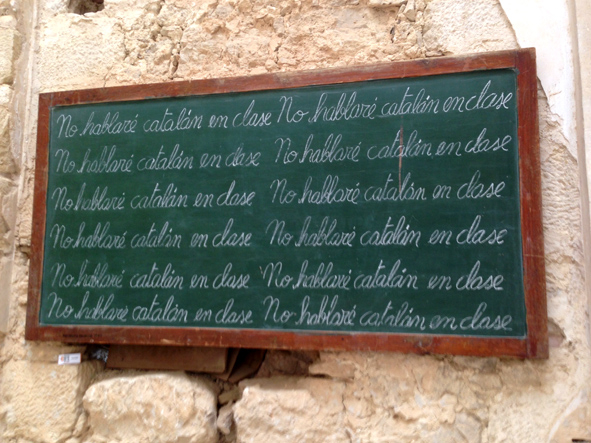 No hablaré catalán en clase No hablaré catalán en clase
No hablaré catalán en clase No hablaré catalán en clase
No hablaré catalán en clase No hablaré catalán en clase
No hablaré catalán en clase No hablaré catalán en clase
No hablaré catalán en clase No hablaré catalán en clase
No hablaré catalán en clase No hablaré catalán en clase